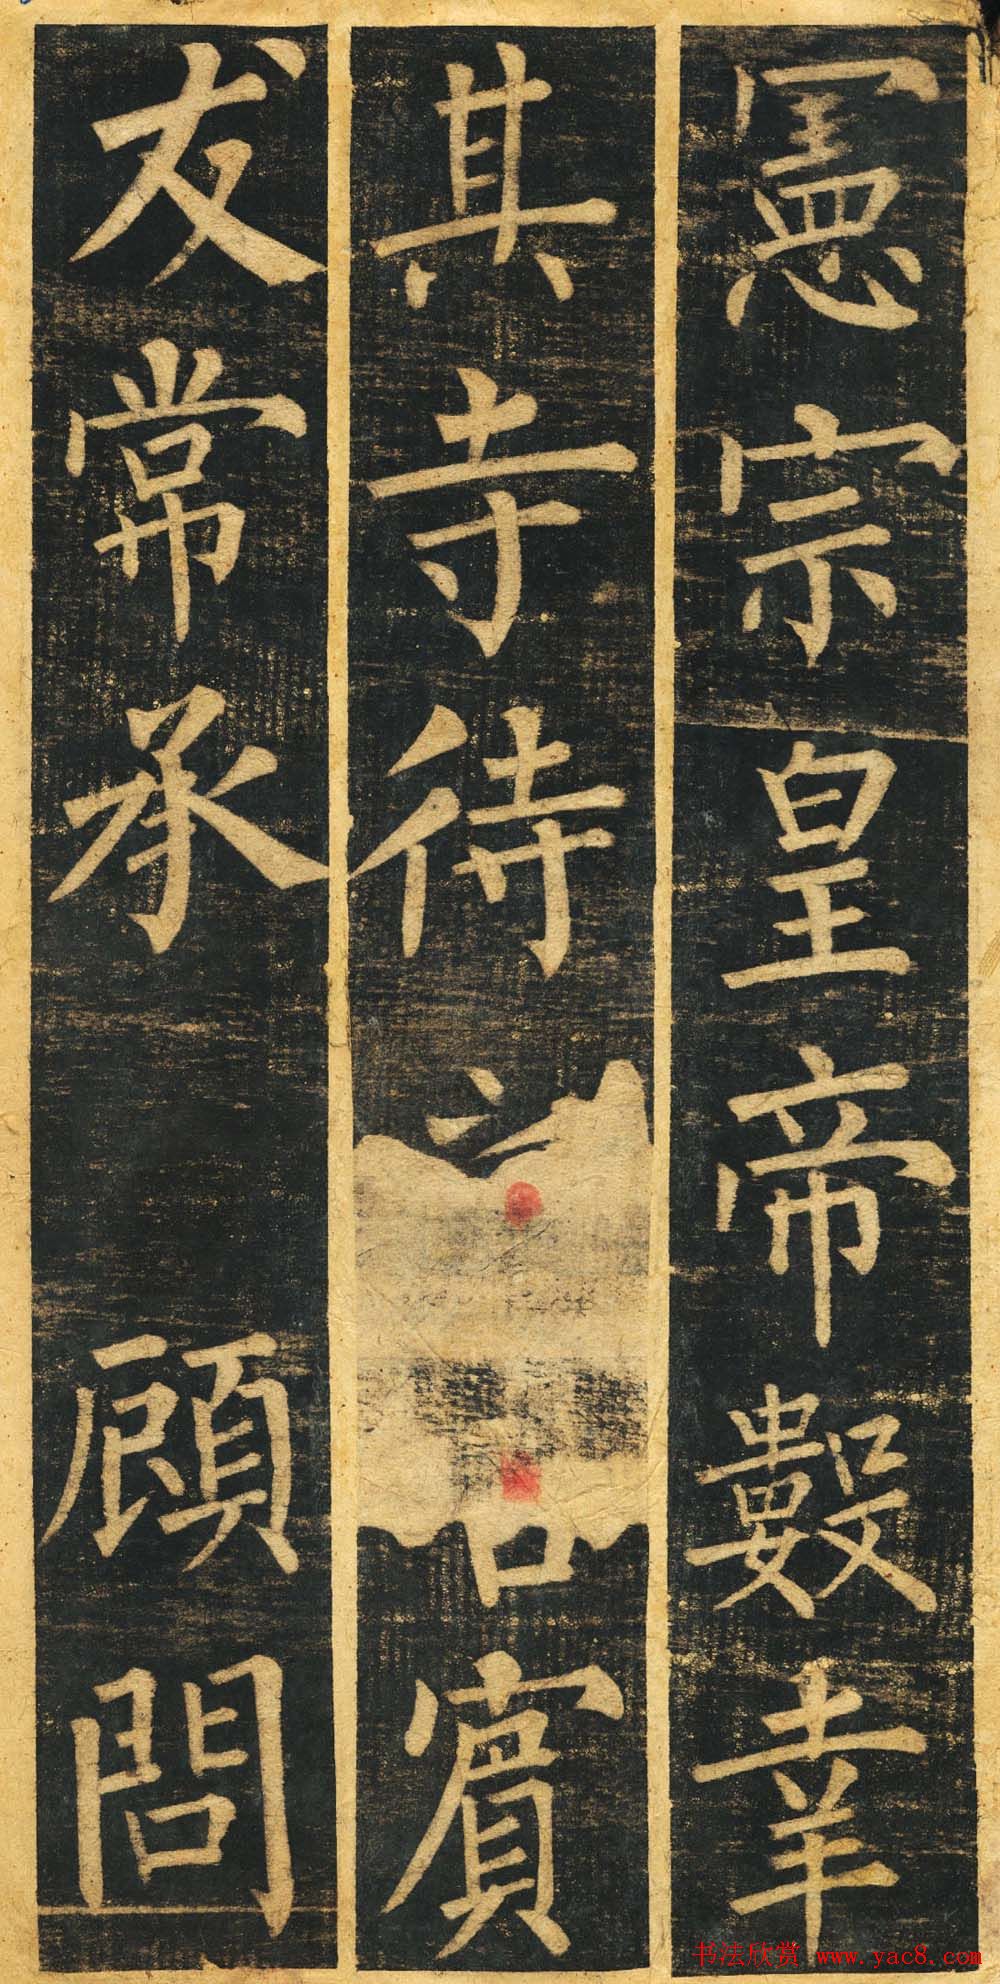 憲宗皇帝數幸
其寺待賔
友常承顧問
书法欣赏 www.yac8.com